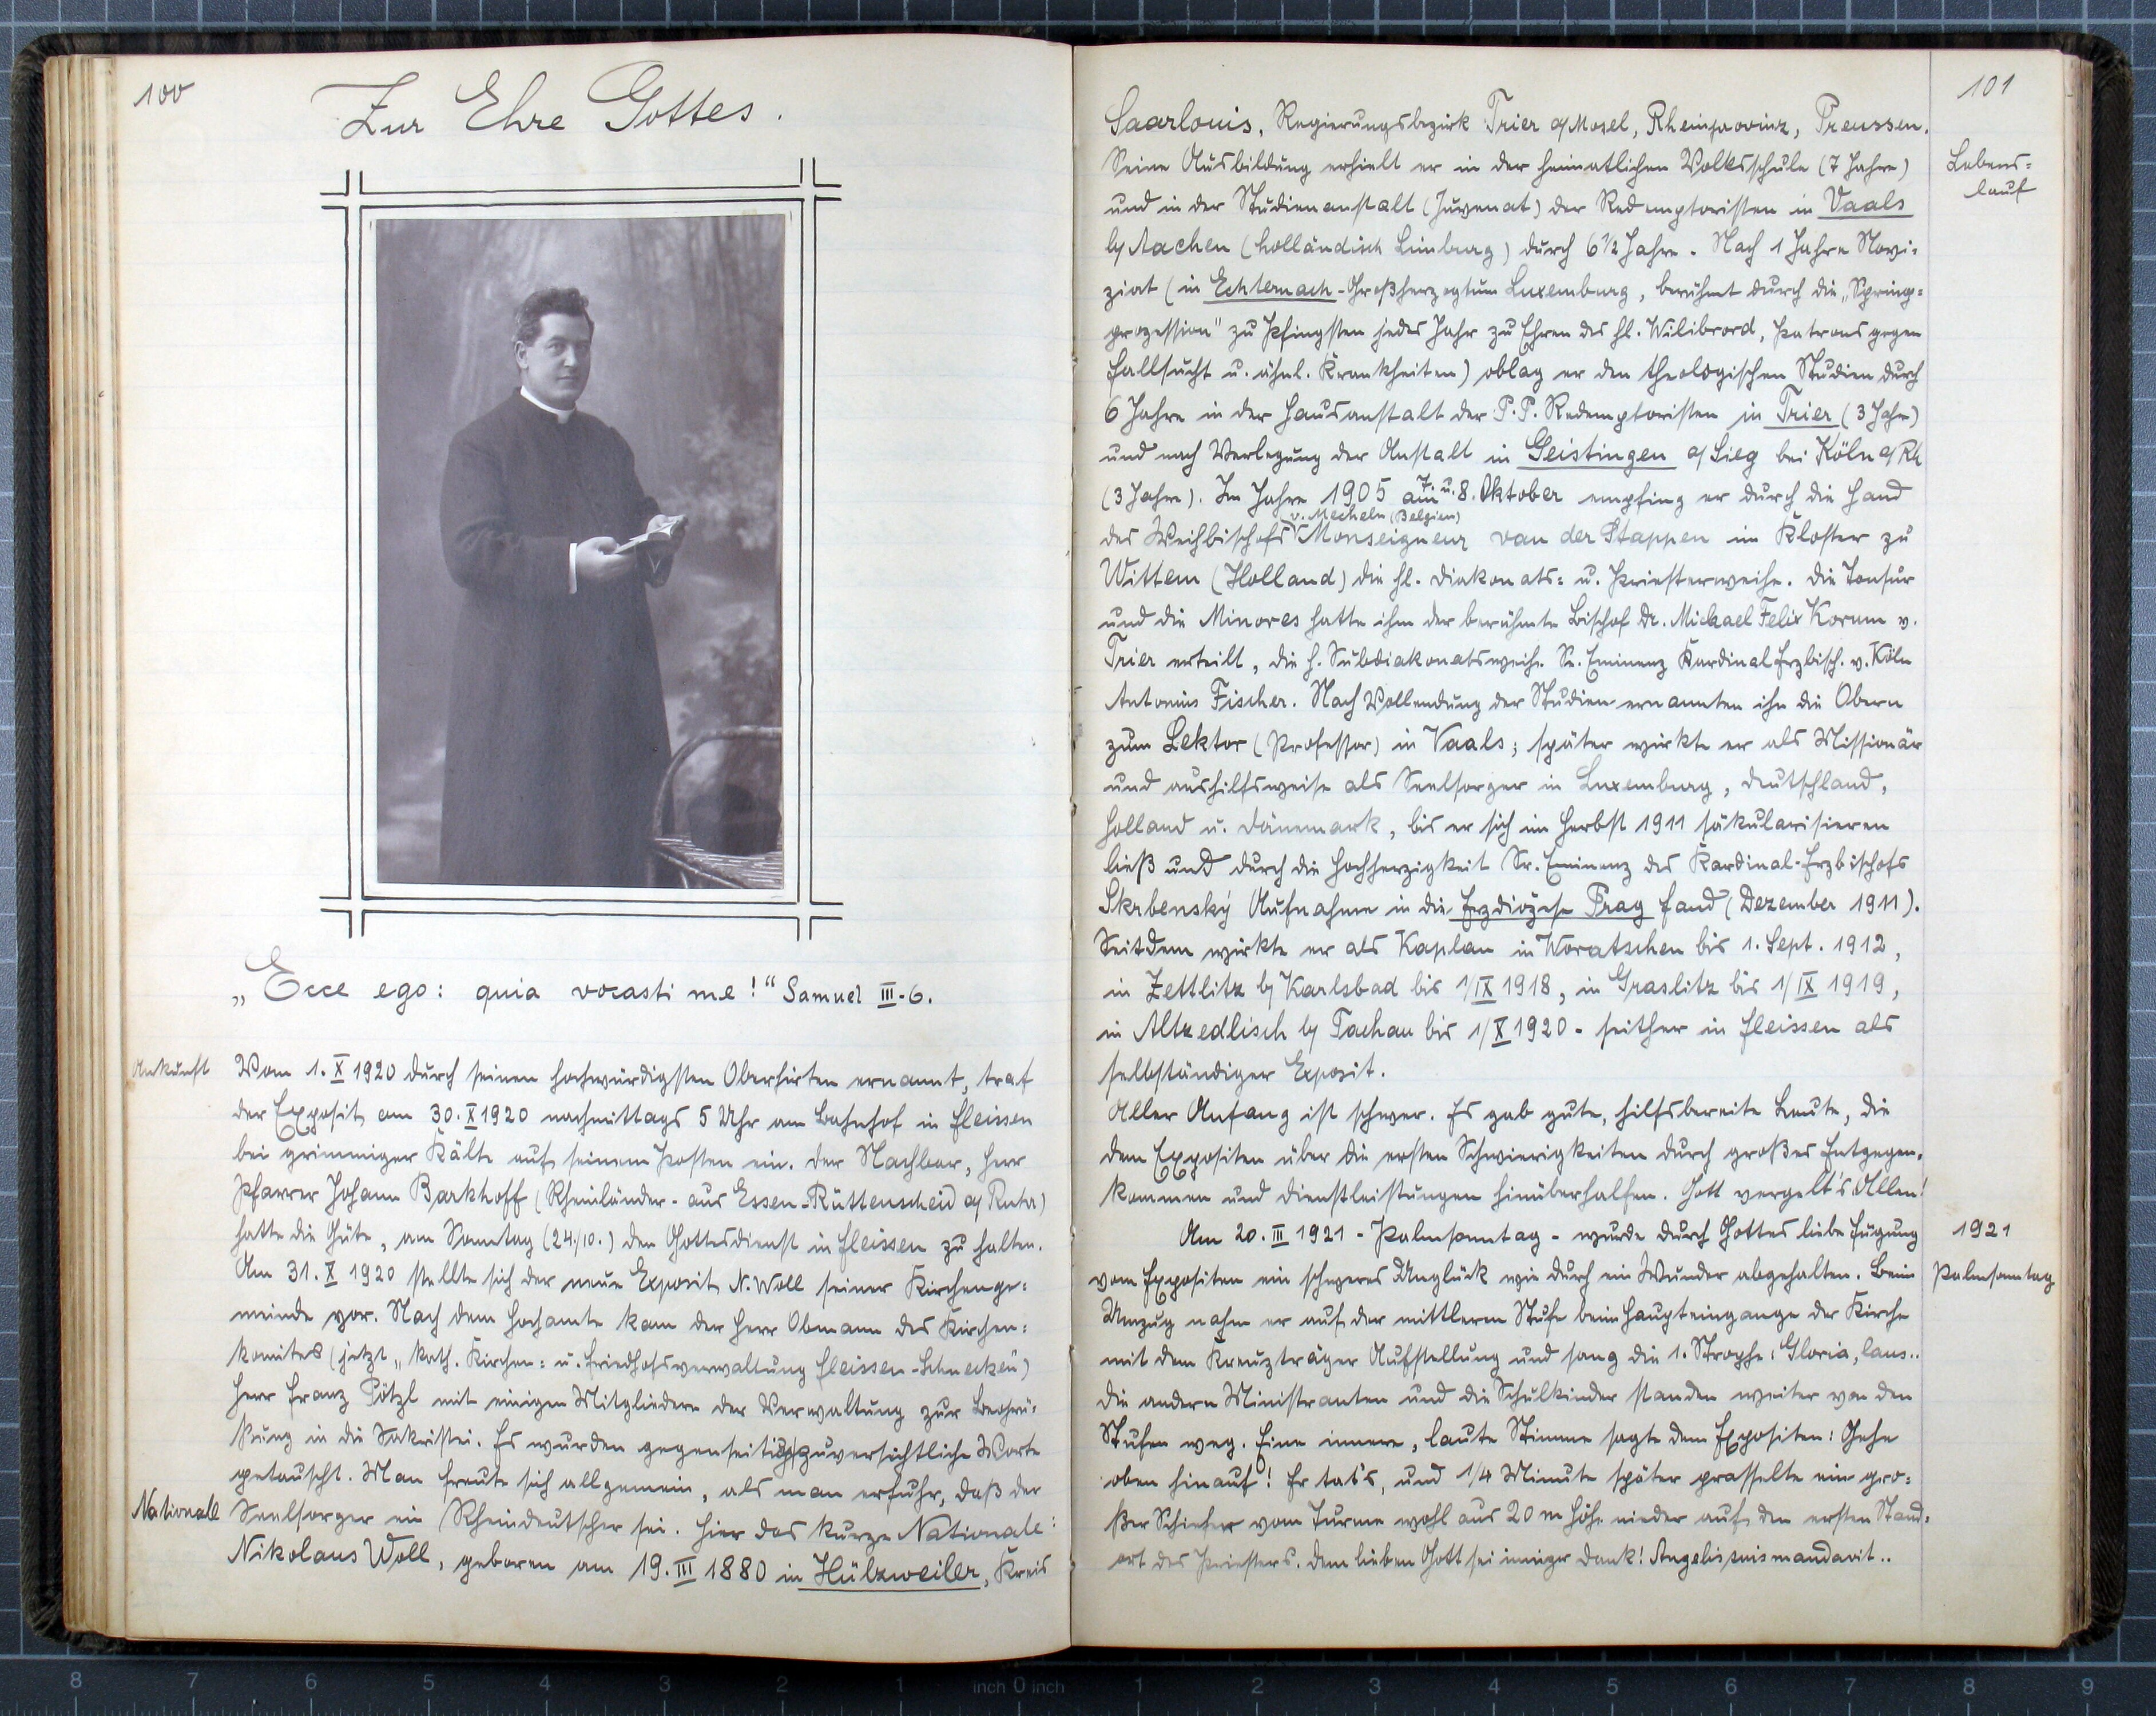 100
Zur Ehre Gottes.
„Ecce ego: quia vocasti me!“ Samuel III-6.
Ankunft
Vom 1. X 1920 durch seinen hochwürdigsten Oberhirten ernannt, traf
der Exposit am 30. X 1920 nachmittags 5 Uhr am Bahnhof in Fleissen
bei grimmiger Kälte auf seinem Posten ein. Der Nachbar, Herr
Pfarrer Johann Barkhoff (Rheinländer - aus Essen-Rüttenscheid a/ Ruhr)
hatte die Güte, am Sonntag (24./10.) den Gottesdienst in Fleissen zu halten.
Am 31. X 1920 stellte sich der neue Exposit N. Woll seiner Kirchenge=
meinde vor. Nach dem Hochamte kam der Herr Obmann des Kirchen=
komites (jetzt „kath. Kirchen= u. Friedhofsverwaltung Fleissen-Schnecken“)
Herr Franz Pötzl mit einigen Mitgliedern der Verwaltung zur Begrü=
ßung in die Sakristei. Es wurden gegenseitig zuversichtliche Worte
getauscht. Man freute sich allgemein, als man erfuhr, daß der
Nationale
Seelsorger ein Rheindeutscher sei. Hier das kurze Nationale:
Nikolaus Woll, geboren am 19. III 1880 in Hülzweiler, Kreis
101
Saarlouis, Regierungsbezirk Trier a/Mosel, Rheinprovinz, Preussen.
Lebens=
lauf
Seine Ausbildung erhielt er in der heimatlichen Volksschule (7 Jahre)
und in der Studienanstalt (Juvenat) der Redemptoristen in Vaals
b/ Aachen (holländisch Limburg) durch 6 1/2 Jahre. Nach 1 Jahre Novi=
ziat (in Echternach - Großherzogtum Luxemburg, berühmt durch die „Spring=
prozession“ zu Pfingsten jedes Jahr zu Ehren des hl. Wilibrord, Patrons gegen
Fallsucht u. ähnl. Krankheiten) oblag er den theologischen Studien durch
6 Jahre in der Hausanstalt der P.P. Redemptoristen in Trier (3 Jahre)
und nach Verlegung der Anstalt in Geistingen a/ Sieg bei Köln a/ Rh
(3 Jahre). Im Jahre 1905 am 7. u. 8. Oktober empfing er durch die Hand
des Weihbischofs v. Mecheln (Belgien) Monseigneur van der Stappen im Kloster zu
Wittem (Holland) die hl. Diakonats= u. Priesterweihe. Die Tonsur
und die Minores hatte ihm der berühmte Bischof Dr. Michael Felix Korum v.
Trier erteilt, die h. Subdiakonatsweihe Se. Eminenz Kardinal Erzbisch. v. Köln
Antonius Fischer. Nach Vollendung der Studien ernannten ihn die Obern
zum Lektor (Professor) in Vaals; später wirkte er als Missionär
und aushilfsweise als Seelsorger in Luxemburg, Deutschland,
Holland u. Dänemark, bis er sich im Herbst 1911 säkularisieren
ließ und durch die Hochherzigkeit Sr. Eminenz des Kardinal-Erzbischofs
Skrbenský Aufnahme in die Erzdiözese Prag fand (Dezember 1911).
Seitdem wirkte er als Kaplan in Woratschen bis 1. Sept. 1912,
in Zettlitz b/ Karlsbad bis 1/IX 1918, in Graslitz bis 1/IX 1919,
in Altzedlisch b/ Tachau bis 1/X 1920 - seither in Fleissen als
selbständiger Exposit.
Aller Anfang ist schwer. Es gab gute, hilfsbereite Leute, die
dem Expositen über die ersten Schwierigkeiten durch großes Entgegen=
kommen und Dienstleistungen hinüberhalfen. Gott vergelt's Allen!
1921
Palmsonntag
Am 20. III 1921 - Palmsonntag - wurde durch Gottes liebe Fügung
vom Expositen ein schweres Unglück wie durch ein Wunder abgehalten. Beim
Umzug nahm er auf der mittleren Stufe beim Haupteingange der Kirche
mit dem Kreuzträger Aufstellung und sang die 1. Strophe: Gloria, laus..
die andern Ministranten und die Schulkinder standen weiter von den
Stufen weg. Eine innere, laute Stimme sagte dem Expositen: Gehe
oben hinauf! Er tat's, und 1/4 Minute später prasselte ein gro=
ßer Schiefer vom Turme wohl aus 20 m Höhe nieder auf den ersten Stand=
ort des Priesters. Dem lieben Gott sei inniger Dank! Angelis suis mandavit..
8 7 6 5 4 3 2 1 inch 0 inch 1 2 3 4 5 6 7 8 9